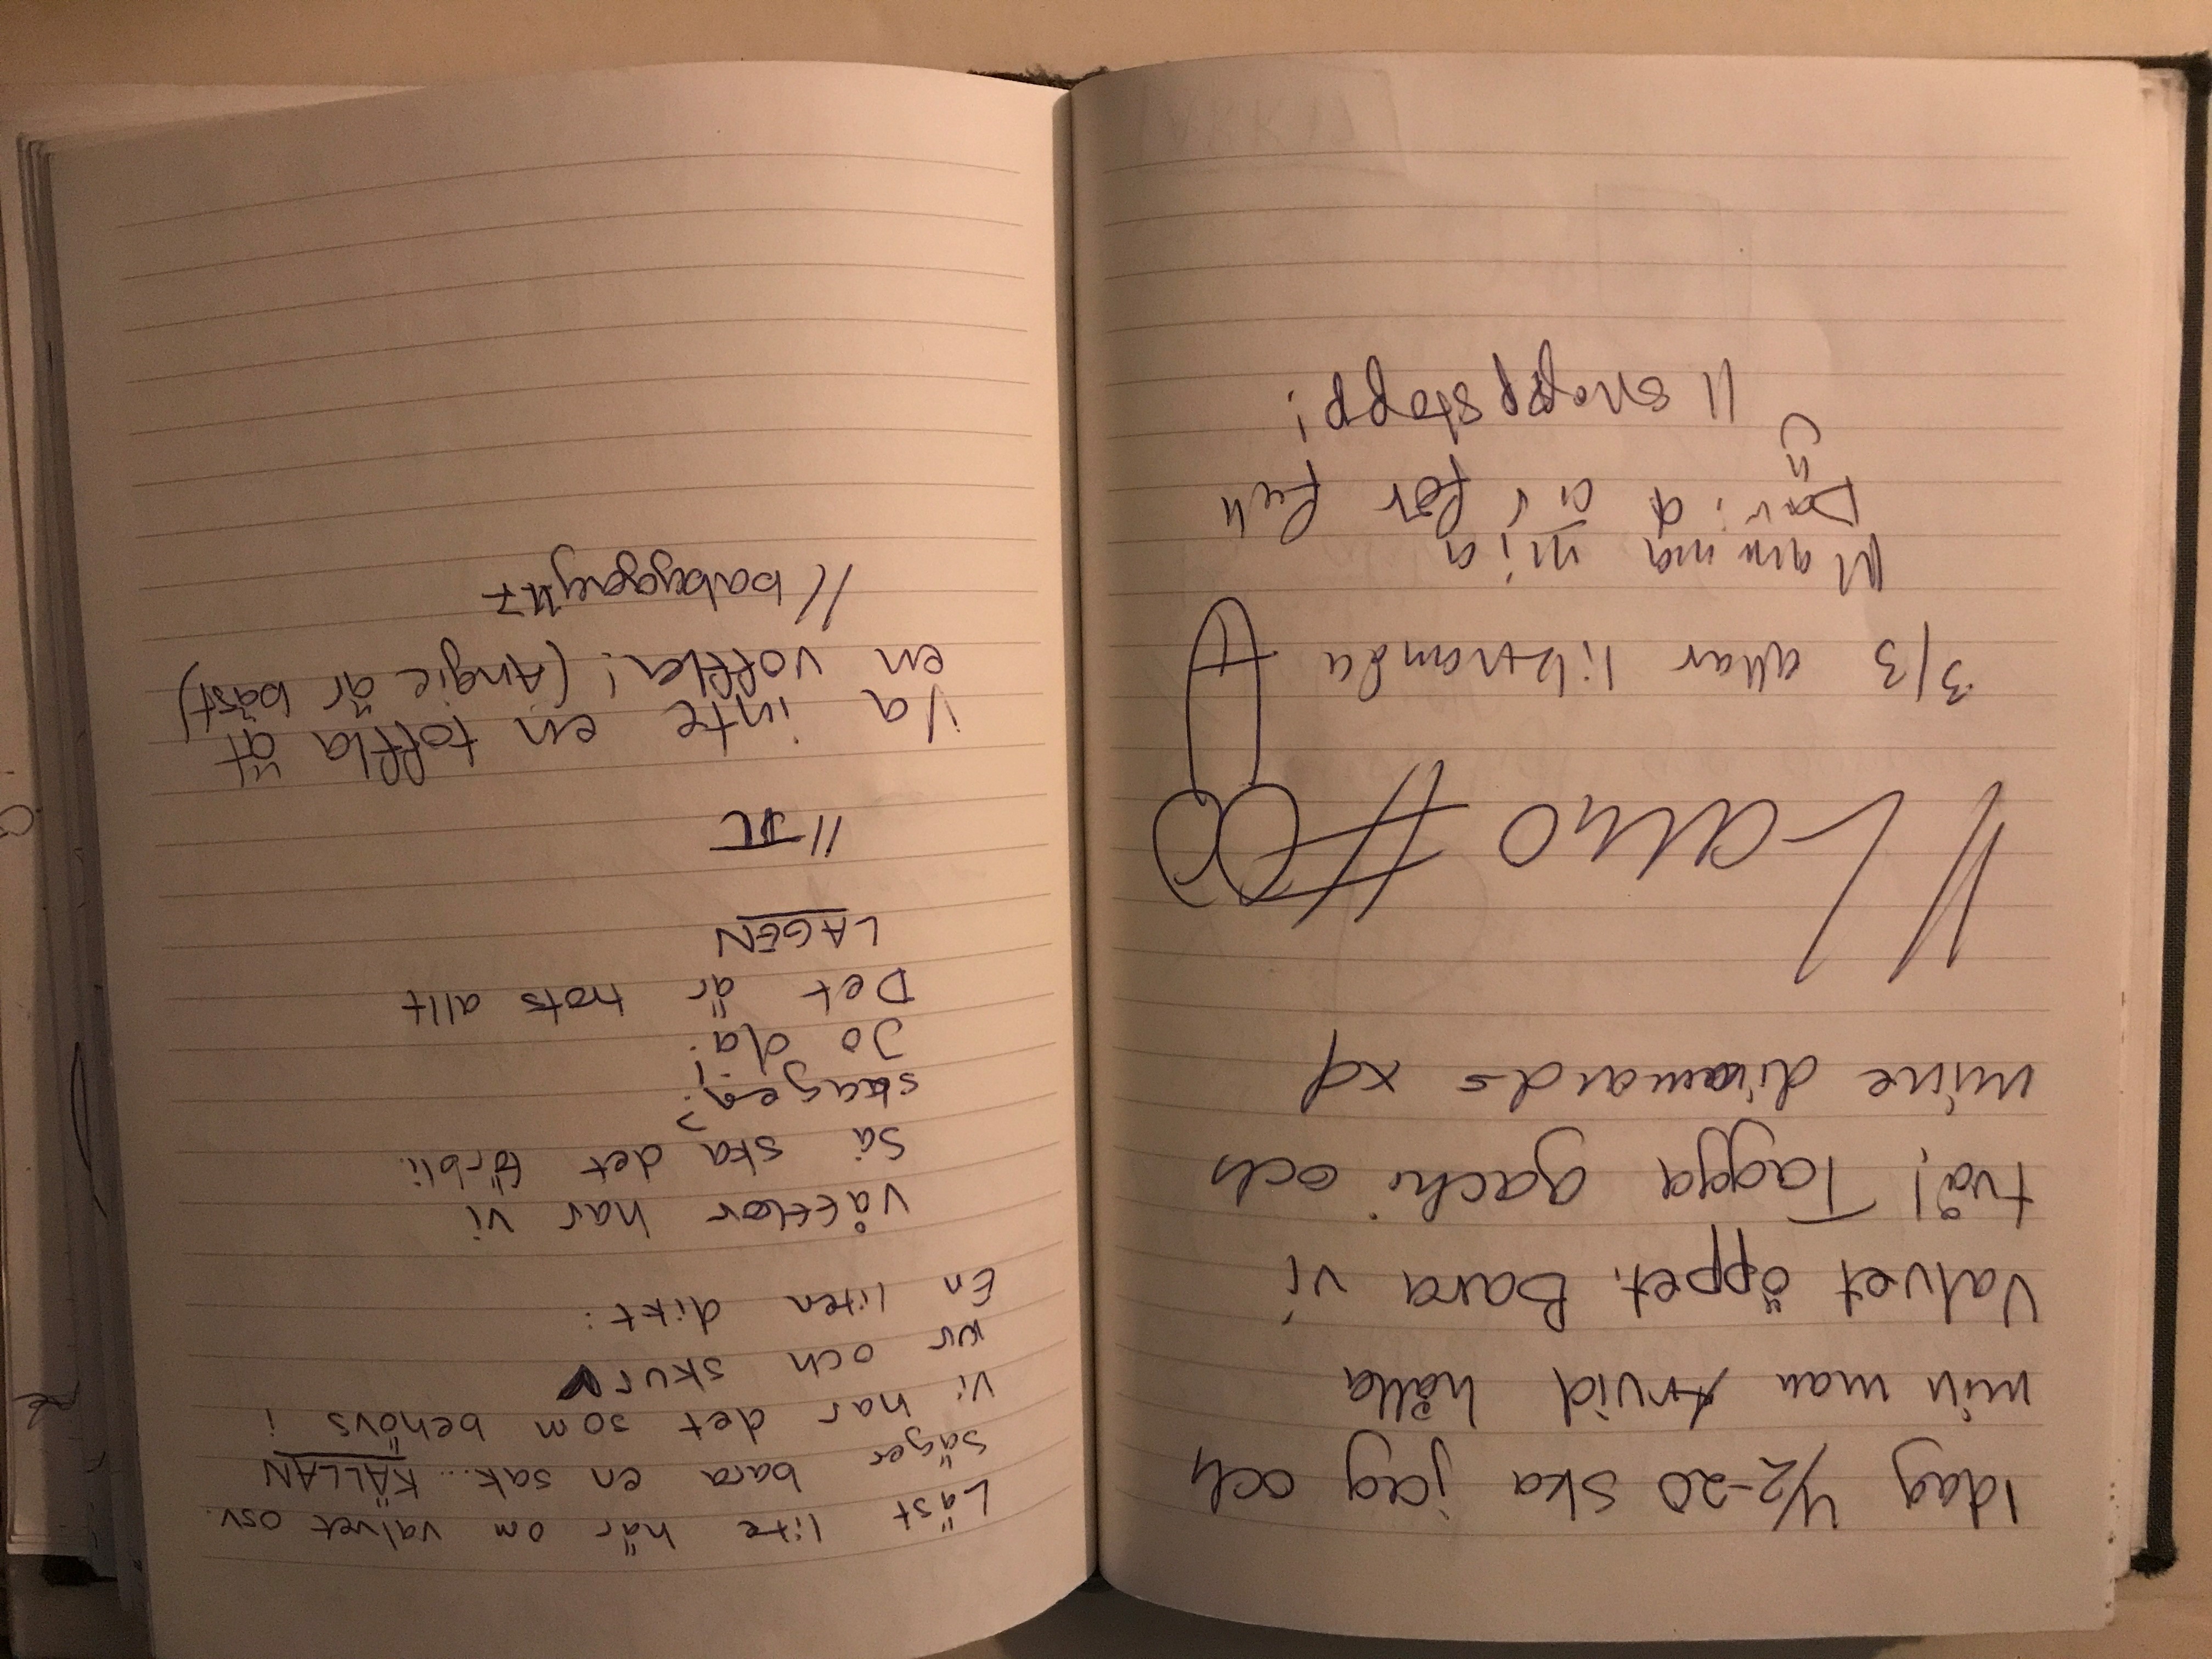 Idag 4/2-20 ska jag och
min man Arvid hålla
Valvet öppet. Bara vi
två! Tagga gachi och
mine diamonds xd
3/3 allar liktnamla
Mamma mia
David är för full
// snoppstopp!
Läst lite här om valvet osv.
säger bara en sak... KÄLLAN
Vi har det som behövs i
ur och skur
En liten dikt:
Våfflor har vi
Så ska det förbli
skagen?
Jo då!
Det är trots allt
LAGEN
Va inte en toffla ät
en voffla! (Angie är bäst)
// babeygrey47